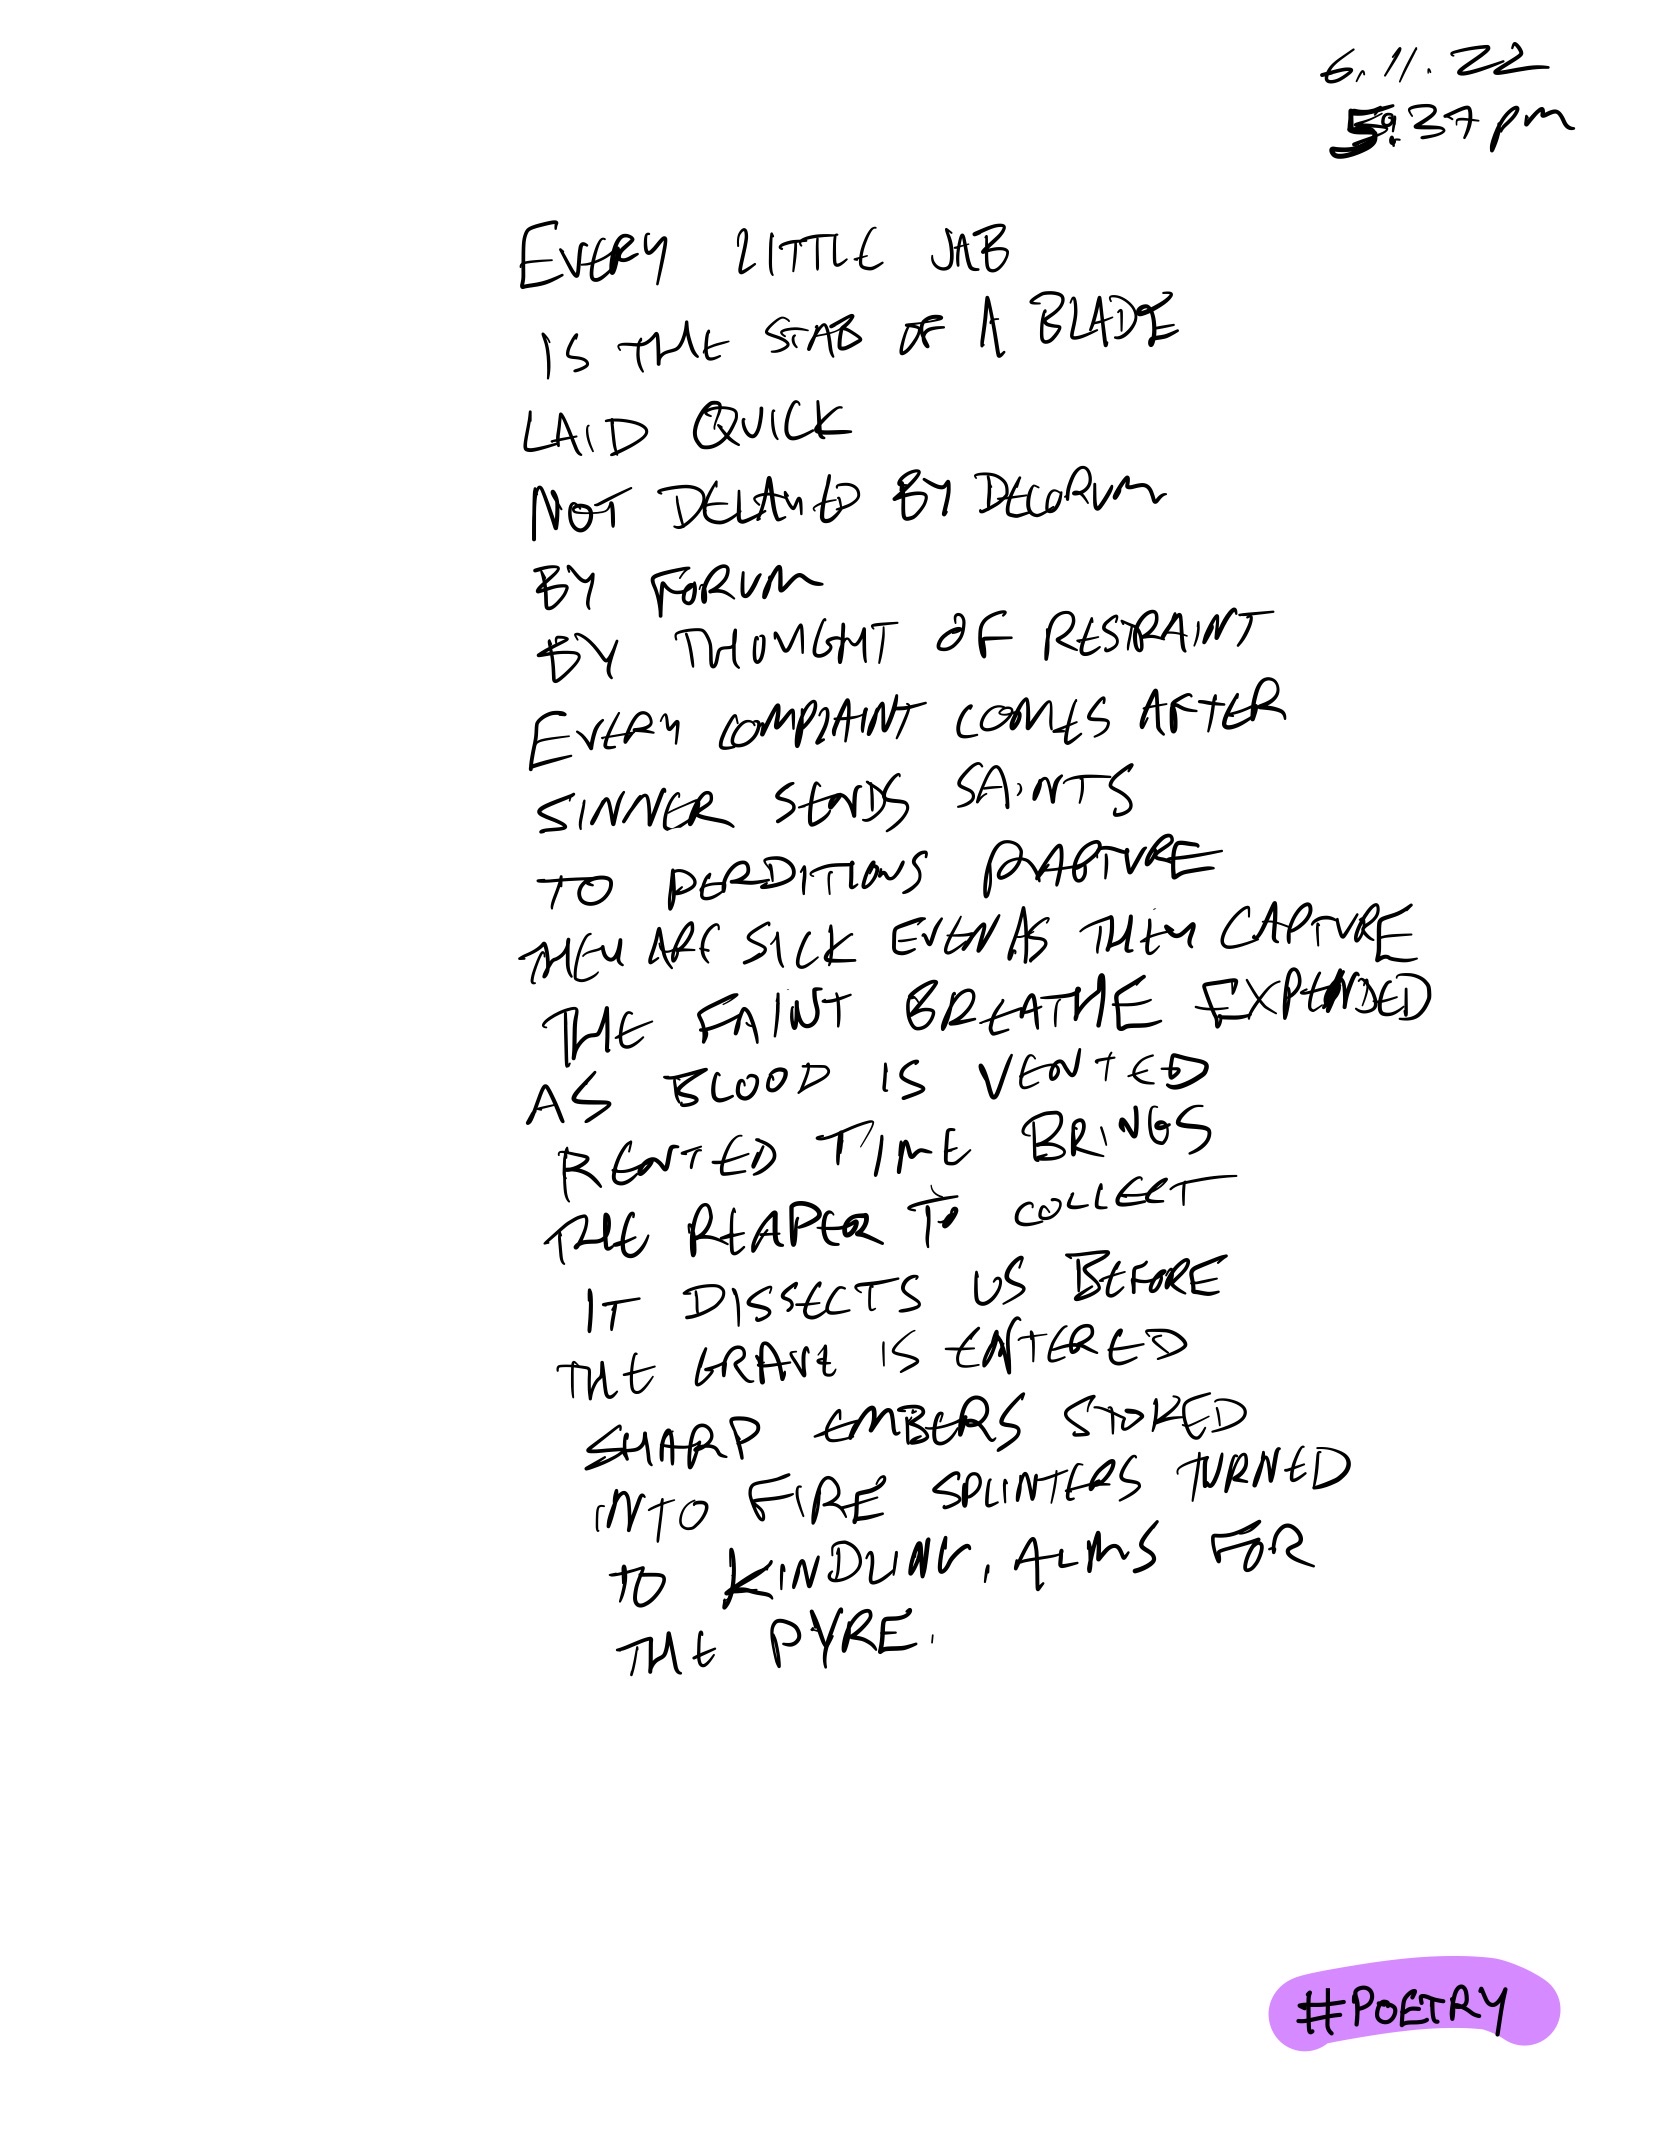 6.11.22
5:37pm
EVERY LITTLE JAB
IS THE STAB OF A BLADE
LAID QUICK
NOT DELAYED BY DECORUM
BY FORUM
BY THOUGHT OF RESTRAINT
EVERY COMPLAINT COMES AFTER
SINNER SENDS SAINTS
TO PERDITIONS RAPTURE
THEY ARE SICK EVEN AS THEY CAPTURE
THE FAINT BREATHE EXPENDED
AS BLOOD IS VENTED
RENTED TIME BRINGS
THE REAPER TO COLLECT
IT DISSECTS US BEFORE
THE GRAVE IS ENTERED
SHARP EMBERS STOKED
INTO FIRE SPLINTERS TURNED
TO KINDLING, ALMS FOR
THE PYRE.
#POETRY